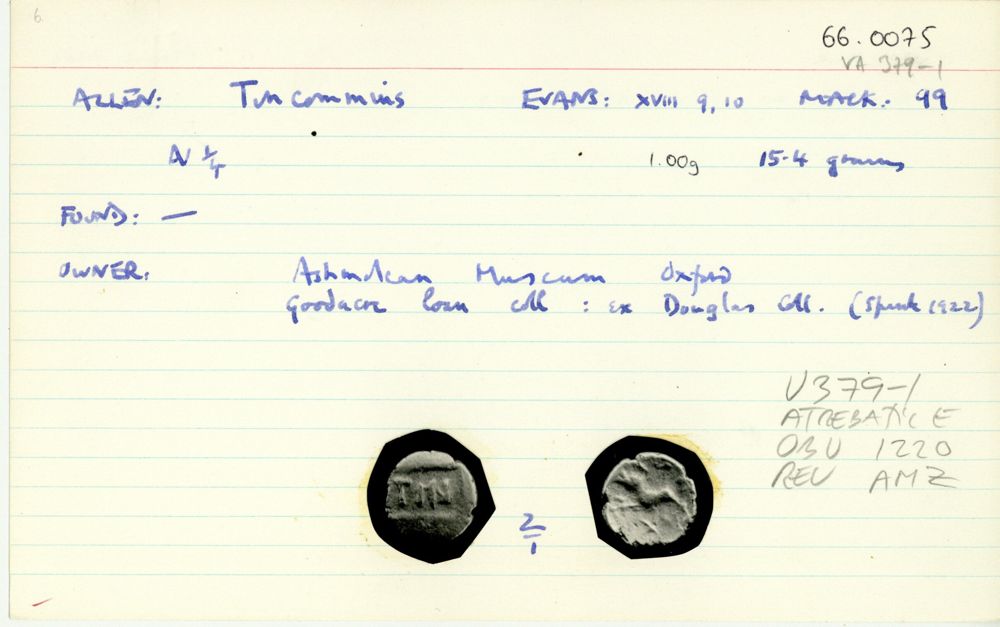 6.
66.0075
VA 379-1
ALLEN: Tincommius EVANS: XVIII 9, 10 MACK: 99
AV 1/4 1.00g 15.4 grains
FOUND: —
OWNER: Ashmolean Museum Oxford
Goodacre loan coll : ex Douglas Coll. (Spink 1922)
V379-1
ATREBATIC E
OBV 1220
REV AMZ
TIN
2/1